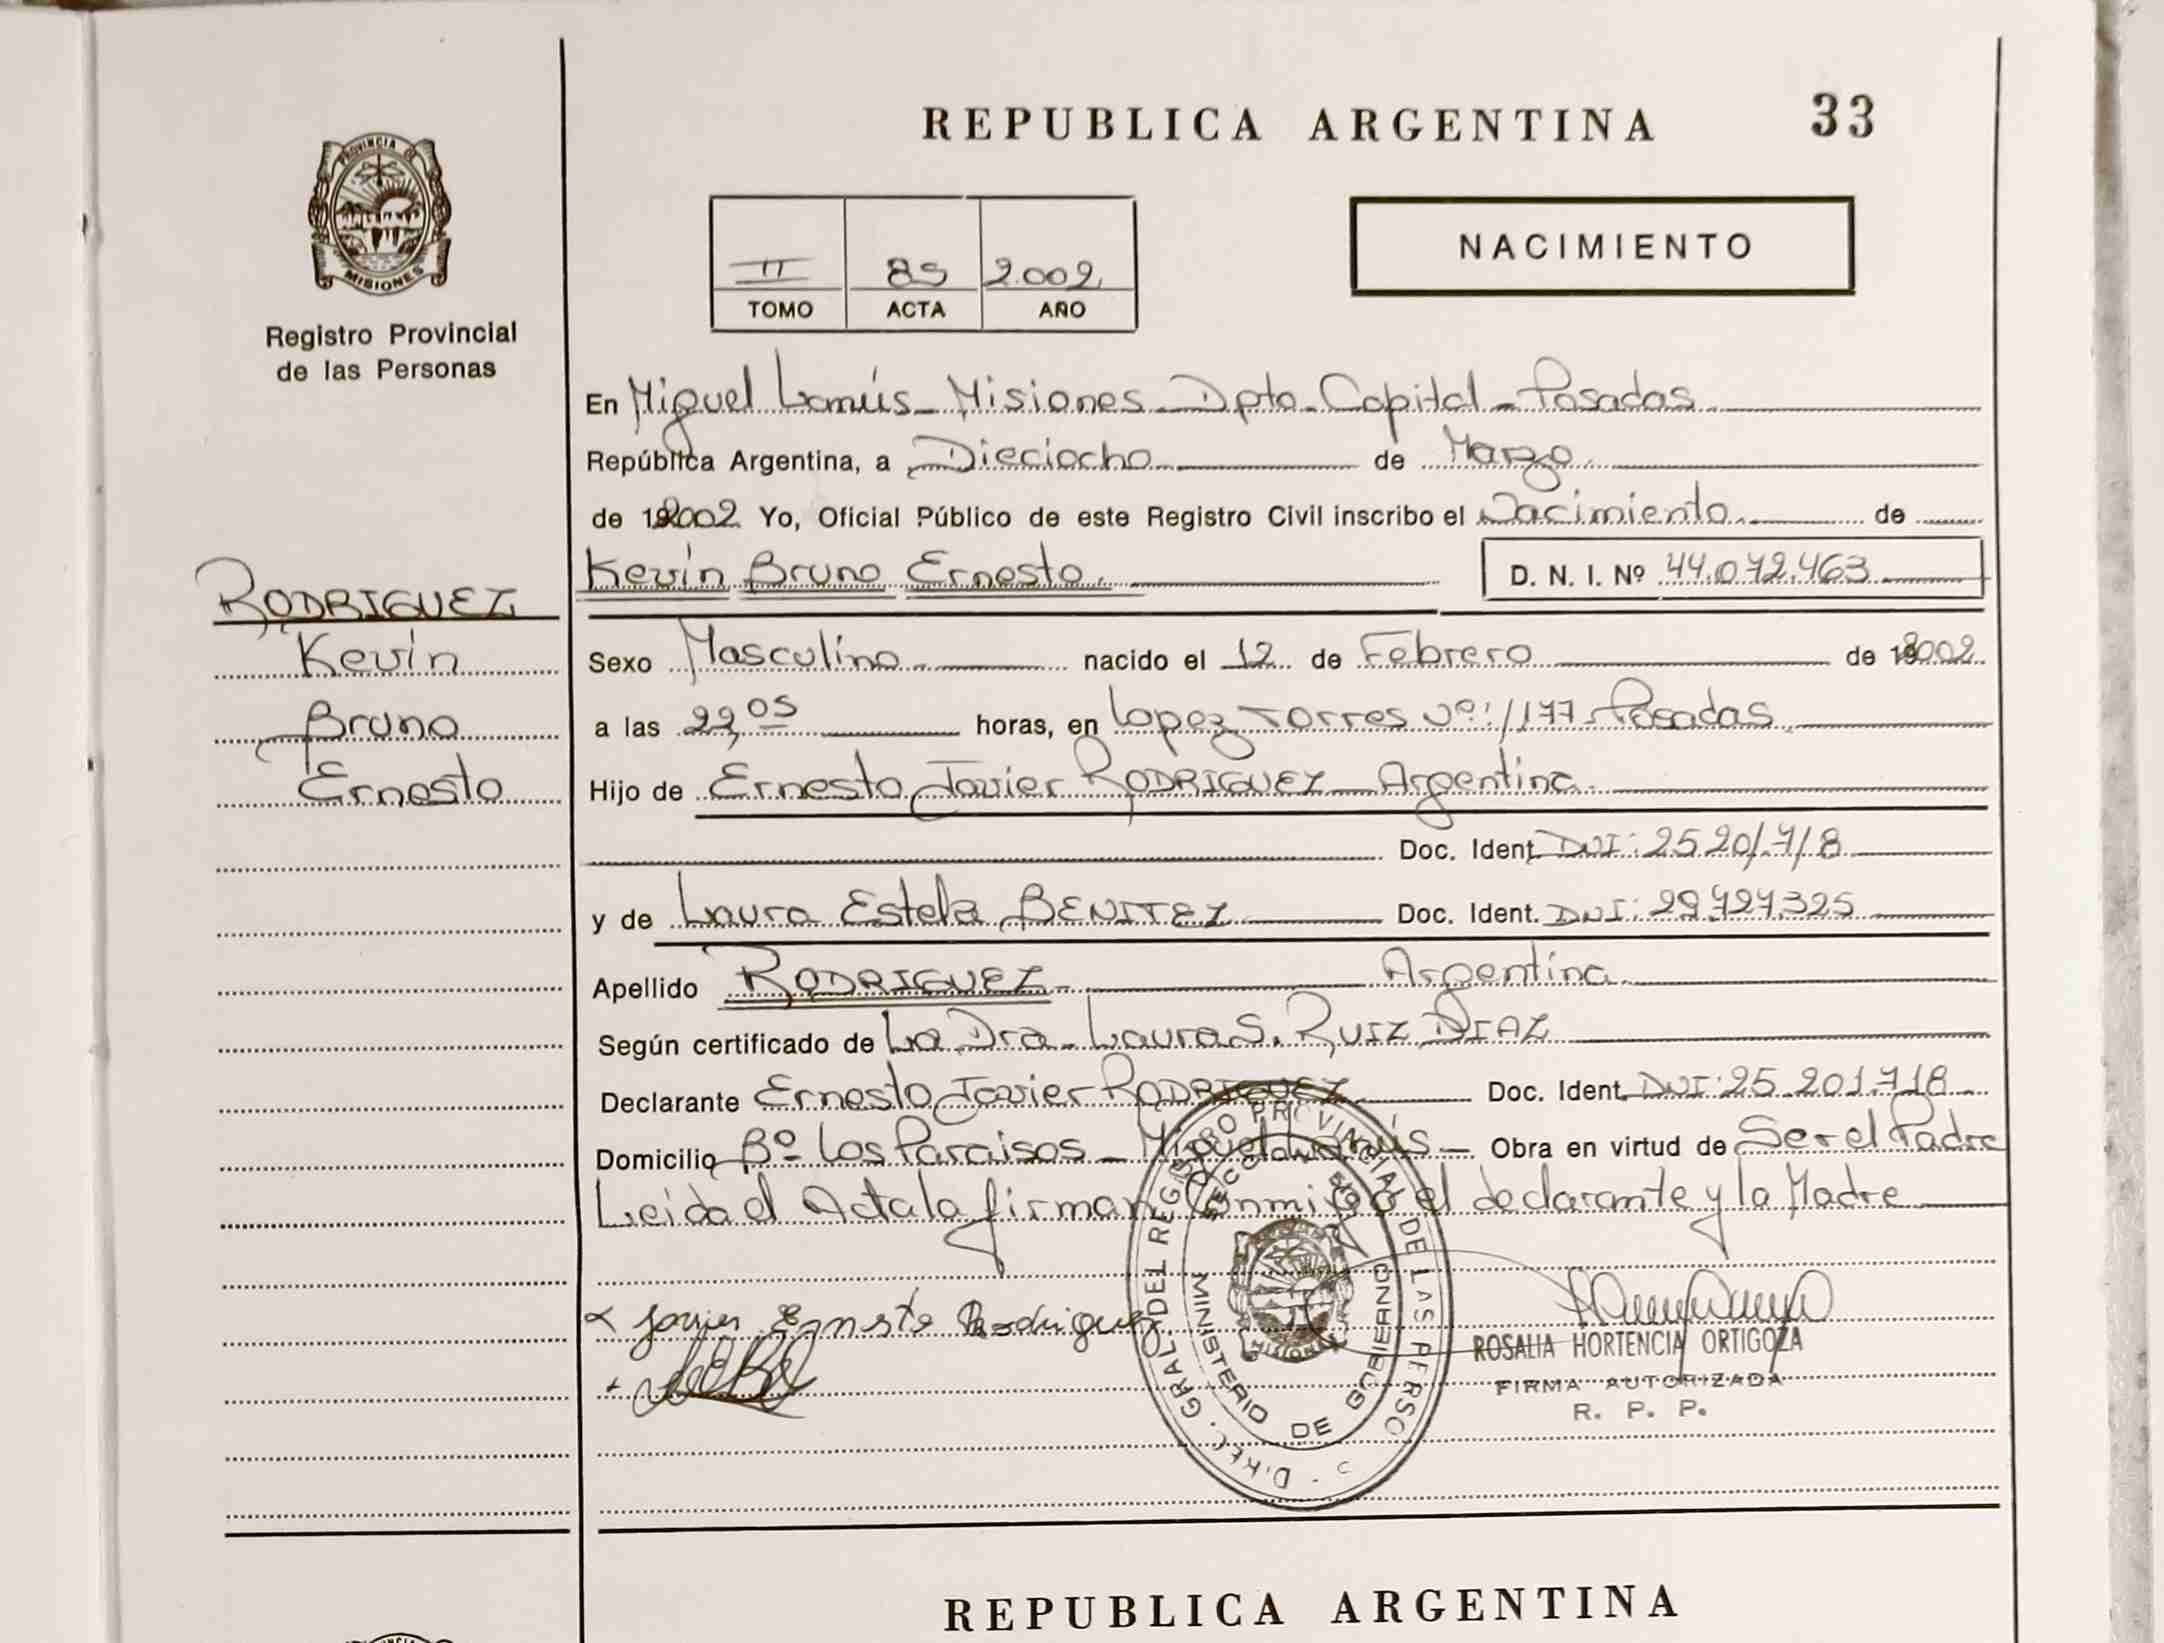 REPUBLICA ARGENTINA 33
PROVINCIA DE
MISIONES
Registro Provincial
de las Personas
II 85 2.002
TOMO ACTA AÑO
NACIMIENTO
En Miguel Lanús - Misiones - Dpto - Capital - Posadas
República Argentina, a Dieciocho de Marzo
de 2002 Yo, Oficial Público de este Registro Civil inscribo el Nacimiento de
RODRIGUEZ
Kevin
Bruno
Ernesto
Kevin Bruno Ernesto D. N. I. Nº 44.072.463
Sexo Masculino nacido el 12 de Febrero de 2002
a las 22,05 horas, en Lopez Torres Nº: 1177 Posadas
Hijo de Ernesto Javier RODRIGUEZ - Argentina
Doc. Ident. DNI: 25201718
y de Laura Estela BENITEZ Doc. Ident. DNI: 29.727.325
Apellido RODRIGUEZ - Argentina
Según certificado de La Dra. Laura S. RUIZ DIAZ
Declarante Ernesto Javier RODRIGUEZ Doc. Ident. DNI: 25.201.718
Domicilio Bº Los Paraisos - Miguel Lanús - Obra en virtud de Ser el Padre
Leida el Acta la firman Conmigo el declarante y la Madre
Javier Ernesto Rodriguez
DIREC. GRAL DEL REGISTRO PROVINCIAL DE LAS PERSO
MINISTERIO DE GOBIERNO
MISIONES
ROSALIA HORTENCIA ORTIGOZA
FIRMA AUTORIZADA
R. P. P.
REPUBLICA ARGENTINA